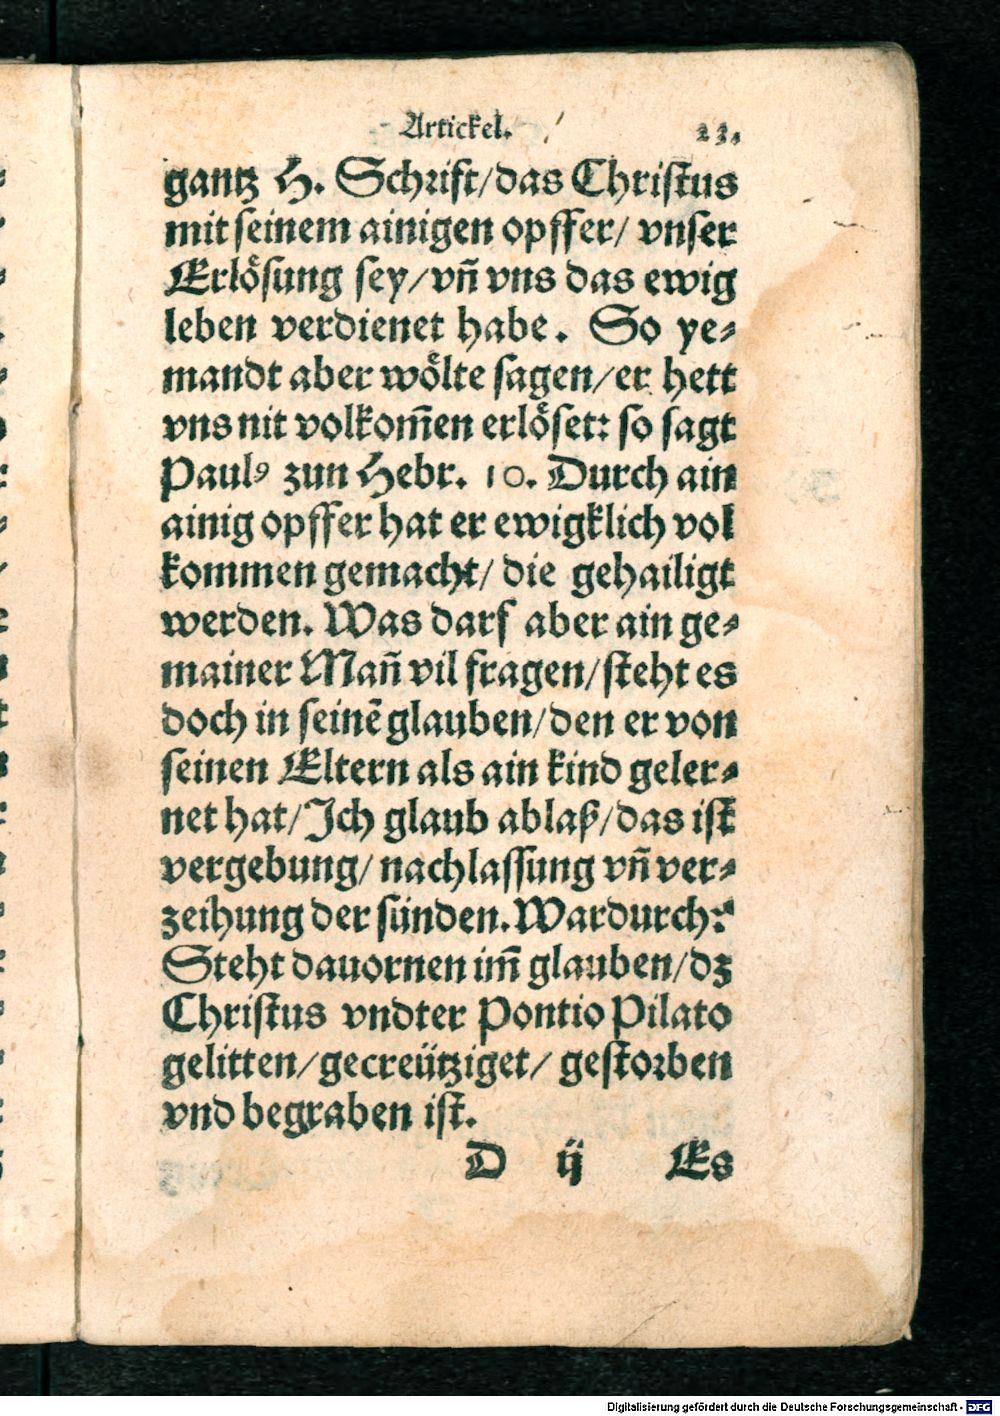 Artickel. 23.
gantz H. Schrift/das Christus
mit seinem ainigen opffer/ vnser
Erlösung sey/vñ vns das ewig
leben verdienet habe. So ye⸗
mandt aber wölte sagen/er hett
vns nit volkom̃en erlöset: so sagt
Paulꝰ zun Hebr. 10. Durch ain
ainig opffer hat er ewigklich vol
kommen gemacht/ die gehailigt
werden. Was darf aber ain ge⸗
mainer Mañ vil fragen/steht es
doch in seinẽ glauben/den er von
seinen Eltern als ain kind geler⸗
net hat/Ich glaub ablaß/das ist
vergebung/nachlassung vñ ver⸗
zeihung der sünden. Wardurch?
Steht dauornen im̃ glauben/dz
Christus vndter Pontio Pilato
gelitten/gecreütziget/ gestorben
vnd begraben ist.
D ij Es
Digitalisierung gefördert durch die Deutsche Forschungsgemeinschaft - DFG